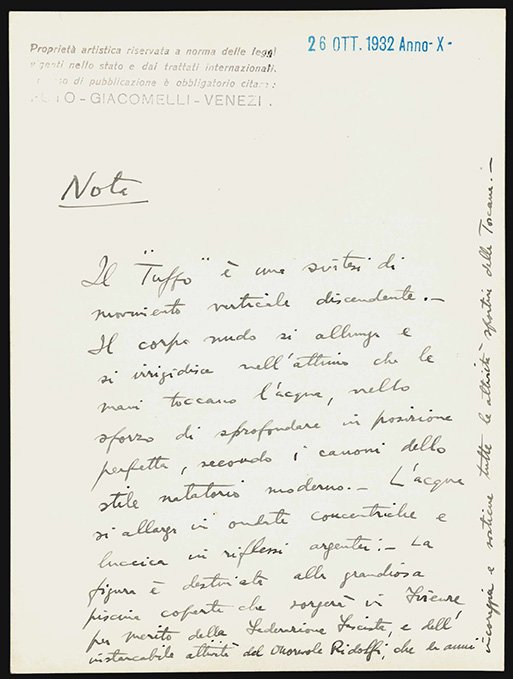 Proprietà artistica riservata a norma delle leggi
vigenti nello stato e dai trattati internazionali.
di pubblicazione è obbligatorio citare:
FOTO - GIACOMELLI - VENEZI .
26 OTT. 1932 Anno-X-
Nota
Il "Tuffo" è una sintesi di
movimento verticale discendente.-
Il corpo nudo si allunga e
si irrigidisce nell'attimo che le
mani toccano l'acqua, nello
sforzo di sprofondare in posizione
perfetta, secondo i canoni dello
stile natatorio moderno.- L'acqua
si allarga in ondate concentriche e
luccica in riflessi argentei.- La
figura è destinata alla grandiosa
piscina coperta che sorgerà in Firenze,
per merito della Federazione Fascista, e dell'
instancabile attività del Onorevole Ridolfi, che da anni
incoraggia e sostiene tutte le attività sportive della Toscana.-